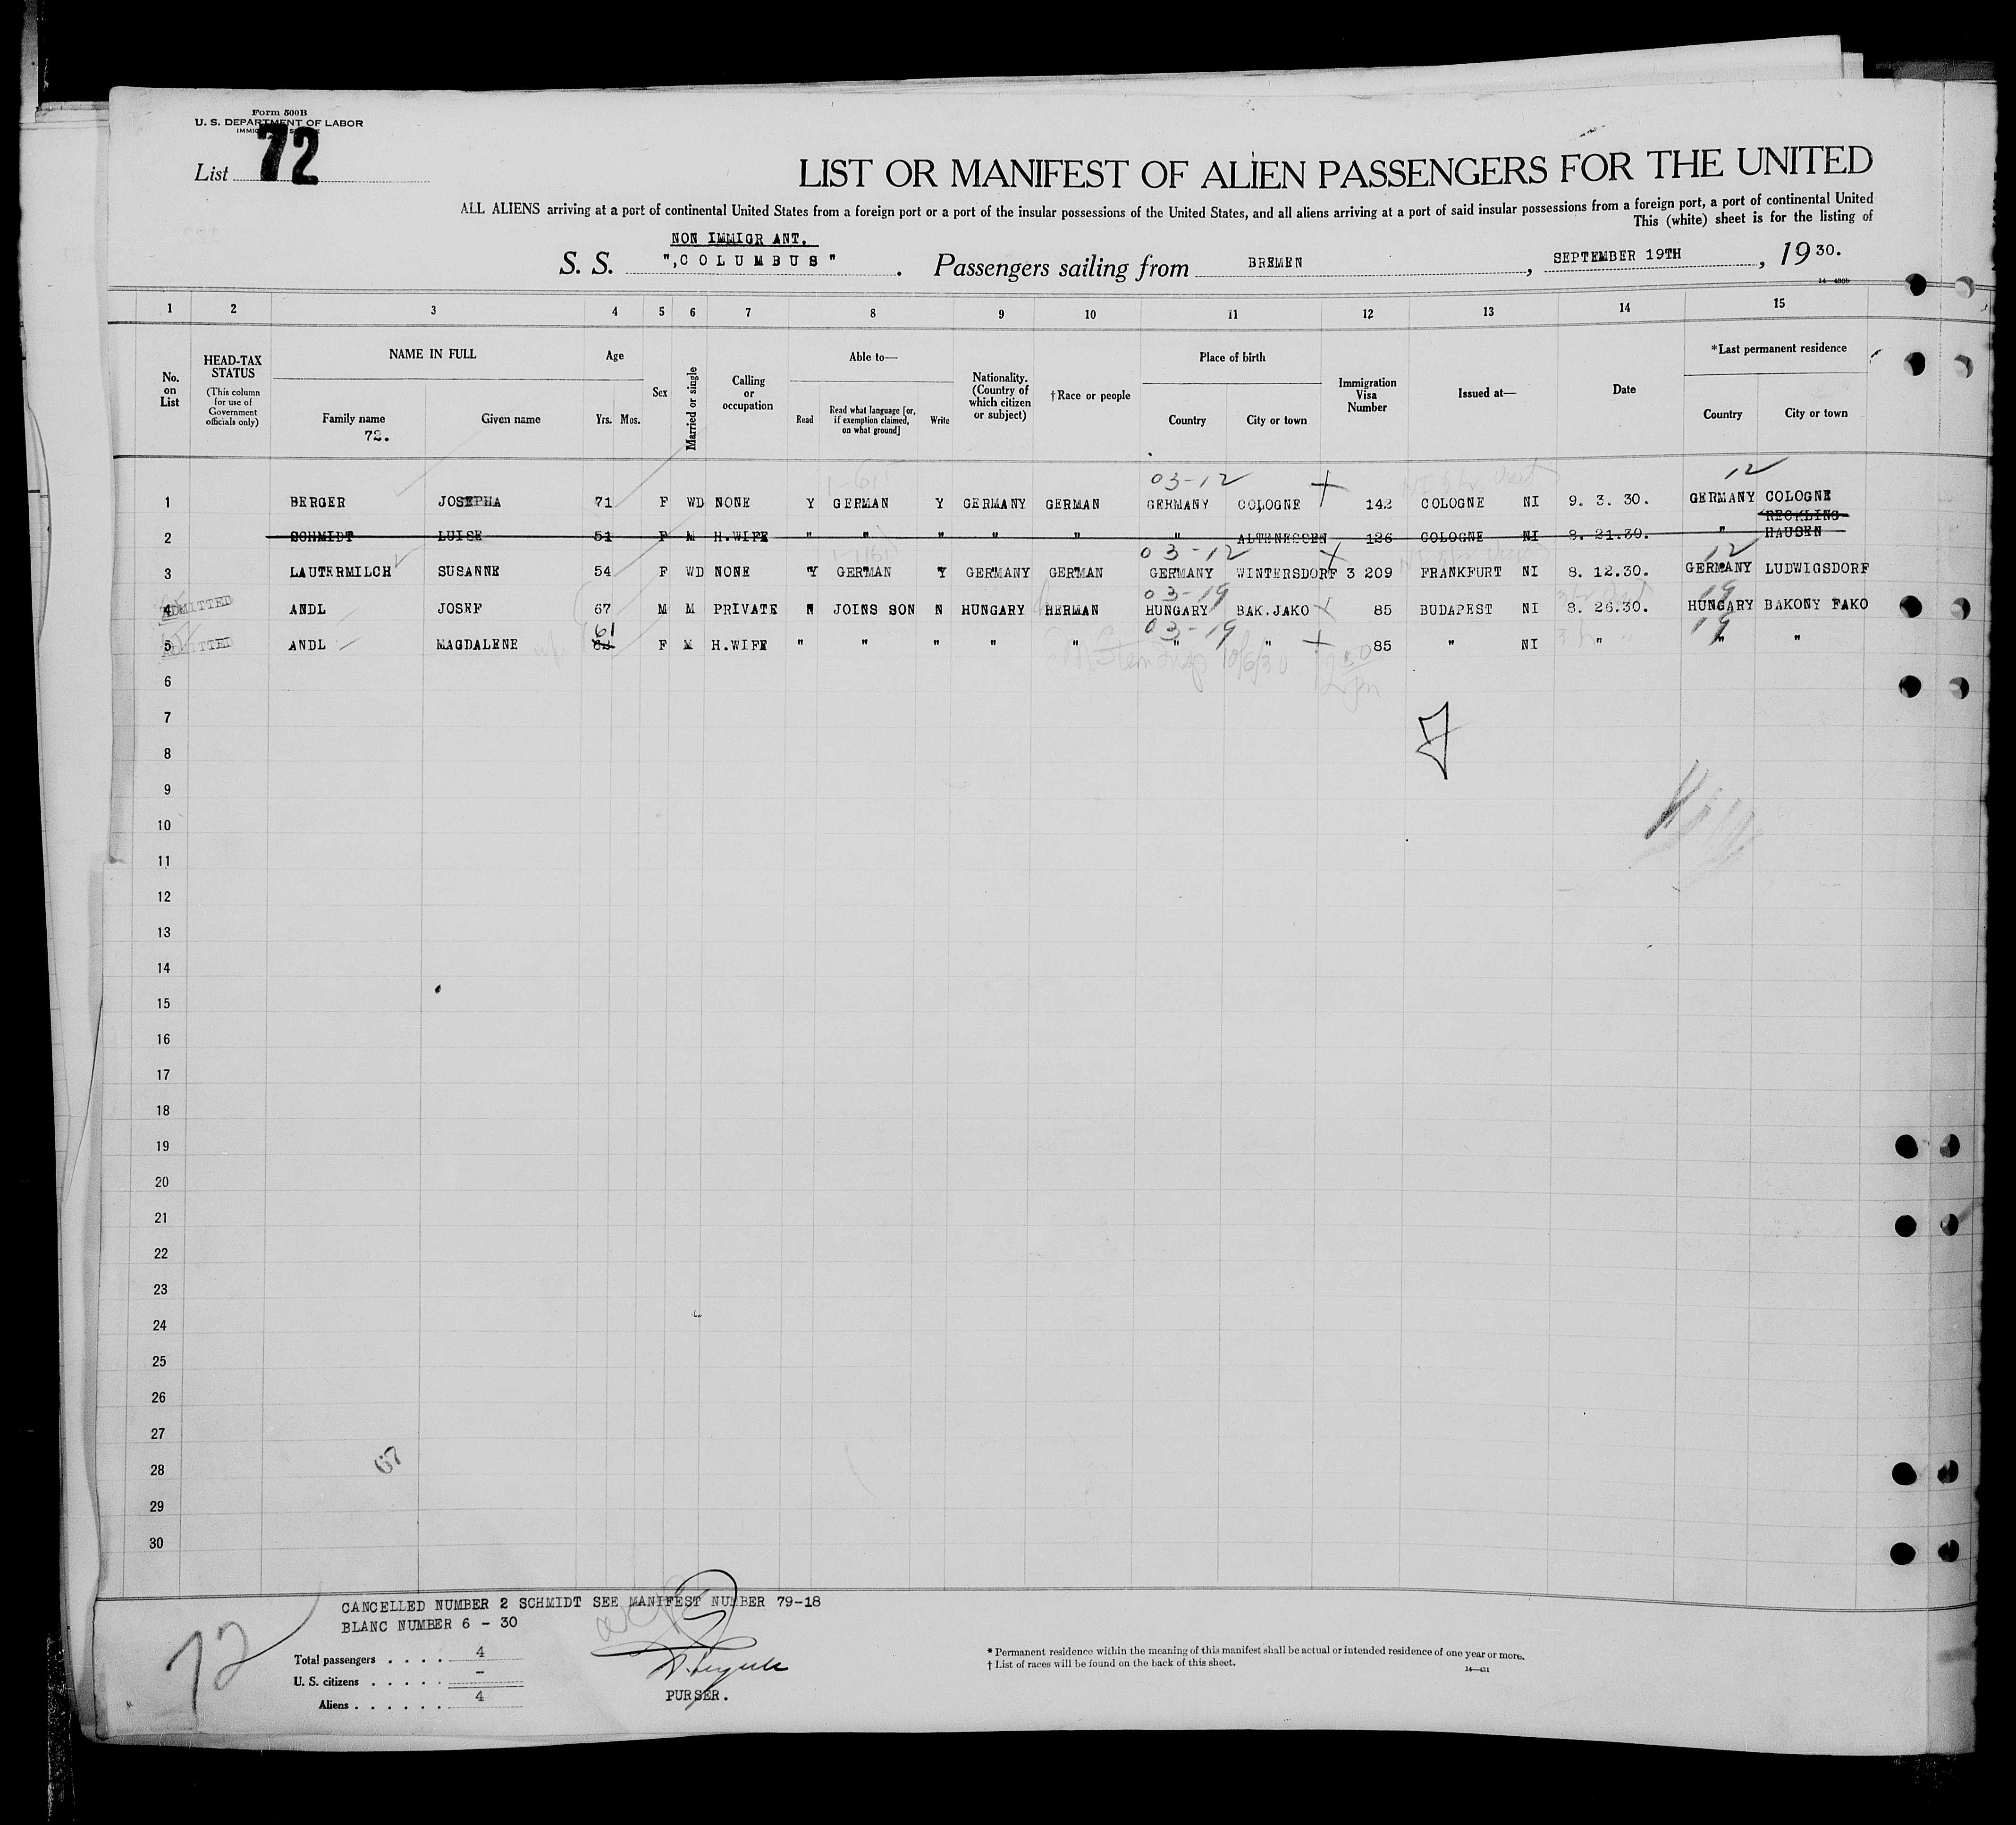 Form 500B
U. S. DEPARTMENT OF LABOR
List 72
LIST OR MANIFEST OF ALIEN PASSENGERS FOR THE UNITED
ALL ALIENS arriving at a port of continental United States from a foreign port or a port of the insular possessions of the United States, and all aliens arriving at a port of said insular possessions from a foreign port, a port of continental United
This (white) sheet is for the listing of
NON IMMIGRANT.
S. S. ",COLUMBUS" . Passengers sailing from BREMEN , SEPTEMBER 19TH , 19 30.
14—430b
1 2 3 4 5 6 7 8 9 10 11 12 13 14 15
No. on List
HEAD-TAX STATUS
(This column for use of Government officials only)
NAME IN FULL
Family name
72.
Given name
Age
Yrs. Mos.
Sex
Married or single
Calling or occupation
Able to—
Read
Read what language [or, if exemption claimed, on what ground]
Write
Nationality. (Country of which citizen or subject)
†Race or people
Place of birth
Country
City or town
Immigration Visa Number
Issued at—
Date
*Last permanent residence
Country
City or town
03-12 12
1 BERGER JOSEPHA 71 F WD NONE Y GERMAN Y GERMANY GERMAN GERMANY COLOGNE 142 COLOGNE NI 9. 3. 30. GERMANY COLOGNE
2 SCHMIDT LUISE 51 F M H.WIFE " " " " " " ALTENESSEN 126 COLOGNE NI 8. 21.30. " RECKLING HAUSEN
03-12 12
3 LAUTERMILCH SUSANNE 54 F WD NONE Y GERMAN Y GERMANY GERMAN GERMANY WINTERSDORF 3 209 FRANKFURT NI 8. 12.30. GERMANY LUDWIGSDORF
03-19 19
4 ADMITTED ANDL JOSEF 67 M M PRIVATE N JOINS SON N HUNGARY HERMAN HUNGARY BAK.JAKO 85 BUDAPEST NI 8. 26.30. HUNGARY BAKONY FAKO
61 03-19 19
5 ADMITTED ANDL MAGDALENE F M H.WIFE " " " " " " " 85 " NI " " "
6
7
8
9
10
11
12
13
14
15
16
17
18
19
20
21
22
23
24
25
26
27
28
29
30
67
CANCELLED NUMBER 2 SCHMIDT SEE MANIFEST NUMBER 79-18
BLANC NUMBER 6 - 30
72
Total passengers . . . . 4
U. S. citizens . . . . . –
Aliens . . . . . . 4
PURSER.
* Permanent residence within the meaning of this manifest shall be actual or intended residence of one year or more.
† List of races will be found on the back of this sheet.
14—431